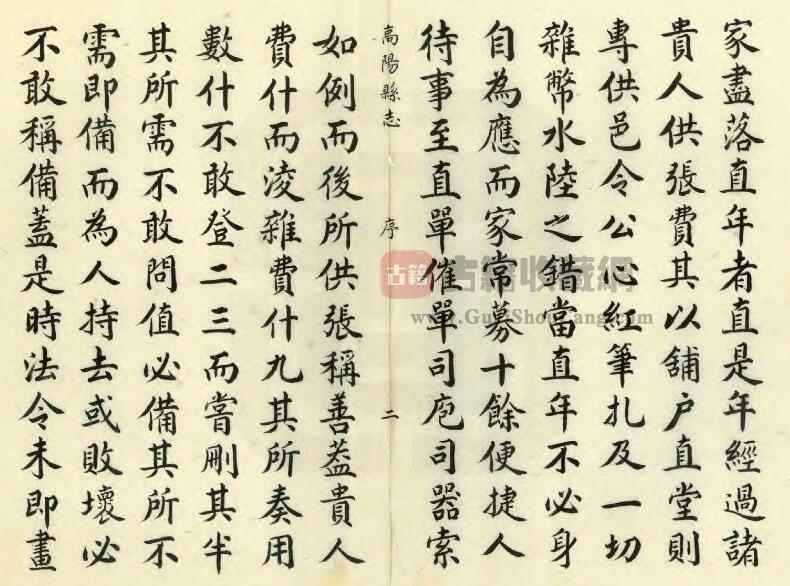 家盡落直年者直是年經過諸
貴人供張費其以舖户直堂則
專供邑令公心紅筆扎及一切
雜幣水陸之錯當直年不必身
自為應而家常募十餘便捷人
待事至直單催單司庖司器索
高陽縣志 序 二
如例而後所供張稱善葢貴人
費什而淩雜費什九其所奏用
數什不敢登二三而嘗刪其半
其所需不敢問值必備其所不
需即備而為人持去或敗壞必
不敢稱備蓋是時法令未即畫
古籍
古籍收藏網
www.GujiShouCang.com